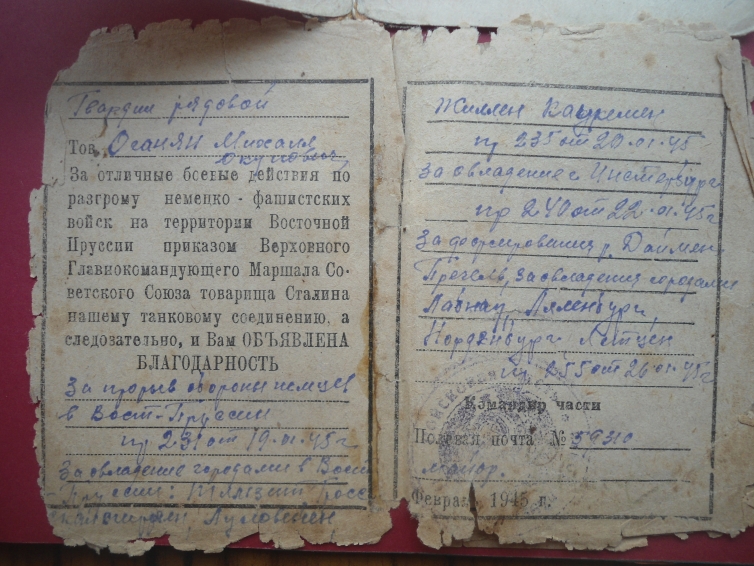 Гвардии рядовой
Тов. Оганян Михаля
Окуповичу,
За отличные боевые действия по
разгрому немецко-фашистских
войск на территории Восточной
Пруссии приказом Верховного
Главнокомандующего Маршала Со-
ветского Союза товарища Сталина
нашему танковому соединению, а
следовательно, и Вам ОБЪЯВЛЕНА
БЛАГОДАРНОСТЬ
За прорыв обороны немцев
в Вост-Пруссии
пр 231 от 19.01.45 г
За овладение городами в Вост
Пруссии: Тильзит Гросс
Жиллен Каукемен
пр 235 от 20.01.45
За овладение г Инстербург
пр 240 от 22.01.45г
За форсирования р. Дайме
Прегель, за овладения городами
Лабиау,
Норденбург Летцен
пр 255 от 26.01.45г
Командир части
Полевая почта №
майор.
Февраль 1945 г.